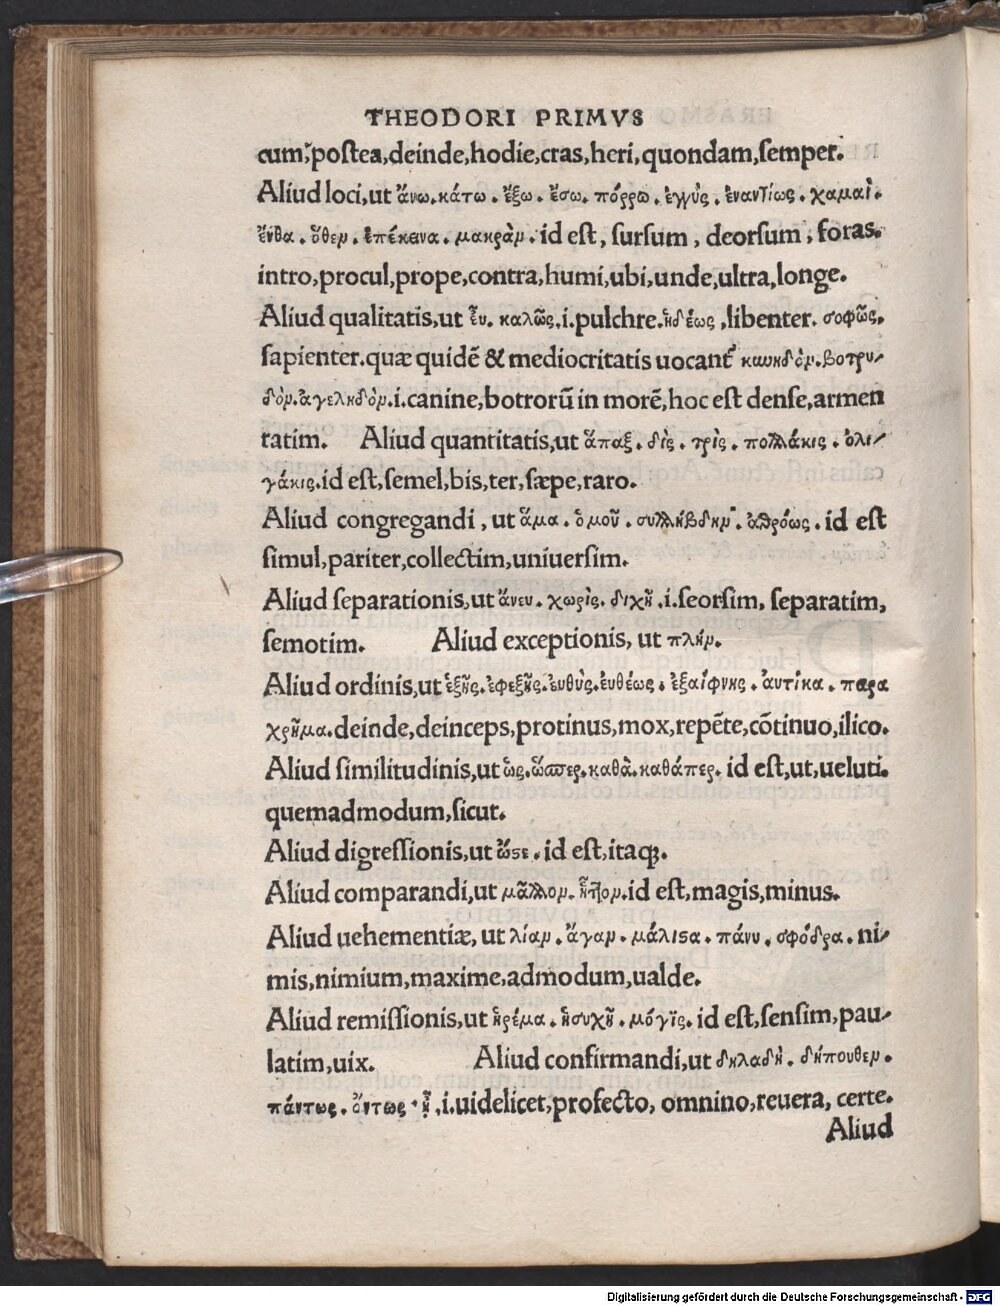 THEODORI PRIMVS
cum, postea, deinde, hodie, cras, heri, quondam, semper.
Aliud loci, ut ἄνω. κάτω. ἔξω. ἔσω. πόῤῥω. ἐγγὺς. ἐναντίως. χαμαὶ.
ἔνθα. ὅθεν. ἐπέκεινα. μακρὰν. id est, sursum, deorsum, foras.
intro, procul, prope, contra, humi, ubi, unde, ultra, longe.
Aliud qualitatis, ut ἐυ. καλῶς. i. pulchre. ἡδέως, libenter. σοφῶς.
sapienter. quæ quidẽ & mediocritatis uocant᷑ κωνηδὸν. βοτρυ-
δὸν. ἀγεληδὸν. i. canine, botrorũ in morẽ, hoc est dense, armen
tatim. Aliud quantitatis, ut ἅπαξ. δὶς. τρὶς. πολλάκις. ὀλι-
γάκις. id est, semel, bis, ter, sæpe, raro.
Aliud congregandi, ut ἅμα. ὁμοῦ. συλλήβδην. ἀθρόως. id est
simul, pariter, collectim, uniuersim.
Aliud separationis, ut ἄνευ. χωρὶς. διχῆ. i. seorsim, separatim,
semotim. Aliud exceptionis, ut πλήν.
Aliud ordinis, ut ἑξῆς. ἐφεξῆς. ἐυθὺς. ἐυθέως. ἐξαίφνης. ἀυτίκα. παρα
χρῆμα. deinde, deinceps, protinus, mox, repẽte, cõtinuo, ilico.
Aliud similitudinis, ut ὡς. ὥσπερ. καθὰ. καθάπερ. id est, ut, ueluti.
quemadmodum, sicut.
Aliud digressionis, ut ὥστε. id est, itaqꝫ.
Aliud comparandi, ut μᾶλλον. ἧττον. id est, magis, minus.
Aliud uehementiæ, ut λίαν. ἄγαν. μάλιστα. πάνυ. σφόδρα. ni-
mis, nimium, maxime, admodum, ualde.
Aliud remissionis, ut ἠρέμα. ἡσυχῆ. μόγις. id est, sensim, pau-
latim, uix. Aliud confirmandi, ut δηλαδὴ. δήπουθεν.
πάντως. ὄντως. ἦ. i. uidelicet, profecto, omnino, reuera, certe.
Aliud
Digitalisierung gefördert durch die Deutsche Forschungsgemeinschaft - DFG